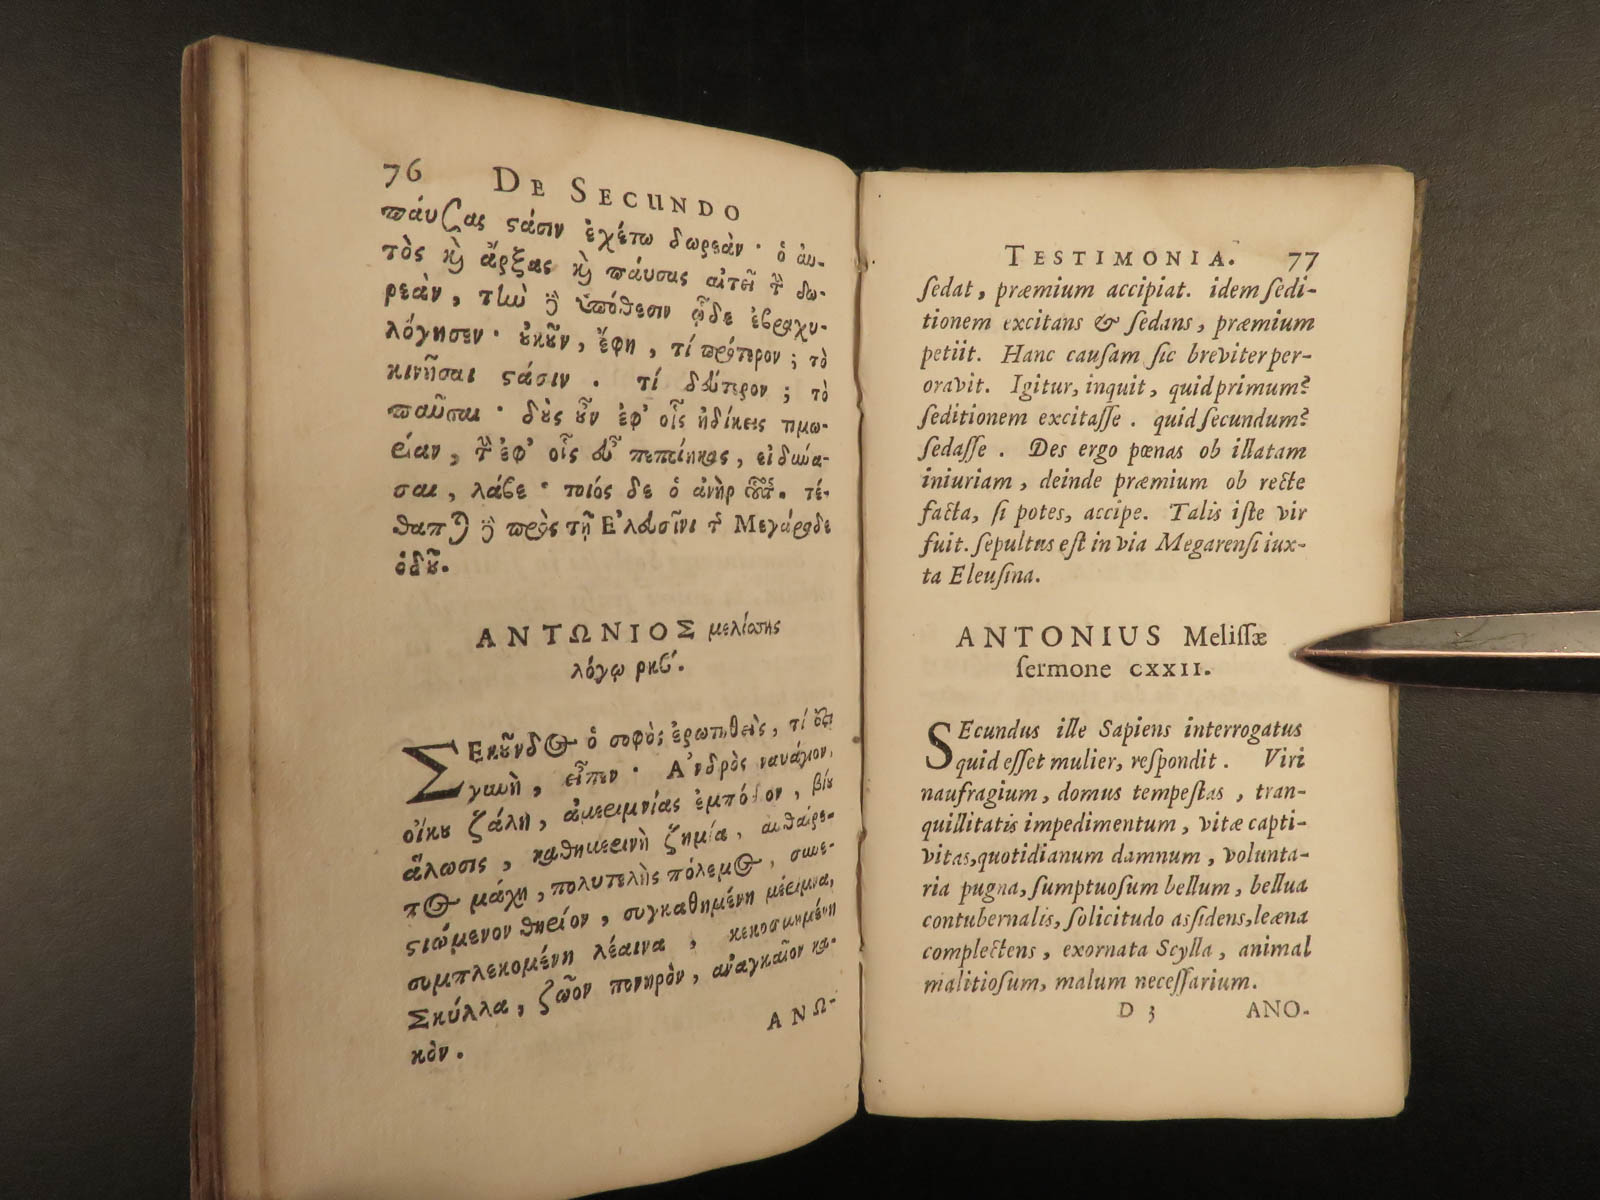 76 DE SECUNDO
παύσας στάσιν ἐχέτω δωρεάν· ὁ αὐ-
τὸς καὶ ἄρξας καὶ παύσας αἰτεῖ τὴν δω-
ρεάν, τὴν δὲ ὑπόθεσιν ὧδε ἐβραχυ-
λόγησεν· οὐκοῦν, ἔφη, τί πρότερον; τὸ
κινῆσαι στάσιν. τί δεύτερον; τὸ
παῦσαι· δοὺς οὖν ἐφ' οἷς ἠδίκεις τιμω-
ρίαν, τὴν ἐφ' οἷς εὖ πεποίηκας, εἰ δύνα-
σαι, λάβε· τοιός δε ὁ ἀνὴρ οὗτος. τέ-
θαπται δὲ πρὸς τῇ Ἐλευσῖνι τῆς Μεγάραδε
ὁδοῦ.
ΑΝΤΩΝΙΟΣ μελίσσης
λόγῳ ρκβ'.
ΣΕκοῦνδος ὁ σοφὸς ἐρωτηθεὶς, τί ἐστι
γυνὴ, εἶπεν· Ἀνδρὸς ναυάγιον,
οἴκου ζάλη, ἀμεριμνίας ἐμπόδιον, βίου
ἅλωσις, καθημερινὴ ζημία, αὐθαίρε-
τος μάχη, πολυτελὴς πόλεμος, συνε-
στιώμενον θηρίον, συγκαθημένη μέριμνα,
συμπλεκομένη λέαινα, κεκοσμημένη
Σκύλλα, ζῶον πονηρὸν, ἀναγκαῖον κα-
κὸν.
ΑΝΩ-
TESTIMONIA. 77
sedat, præmium accipiat. idem sedi-
tionem excitans & sedans, præmium
petiit. Hanc causam sic breviter per-
oravit. Igitur, inquit, quid primum?
seditionem excitasse. quid secundum?
sedasse. Des ergo pœnas ob illatam
iniuriam, deinde præmium ob recte
facta, si potes, accipe. Talis iste vir
fuit. sepultus est in via Megarensi iux-
ta Eleusina.
ANTONIUS Melissæ
sermone CXXII.
SEcundus ille Sapiens interrogatus
quid esset mulier, respondit. Viri
naufragium, domus tempestas, tran-
quillitatis impedimentum, vitæ capti-
vitas, quotidianum damnum, volunta-
ria pugna, sumptuosum bellum, bellua
contubernalis, solicitudo assidens, leæna
complectens, exornata Scylla, animal
malitiosum, malum necessarium.
D 3 ANO-